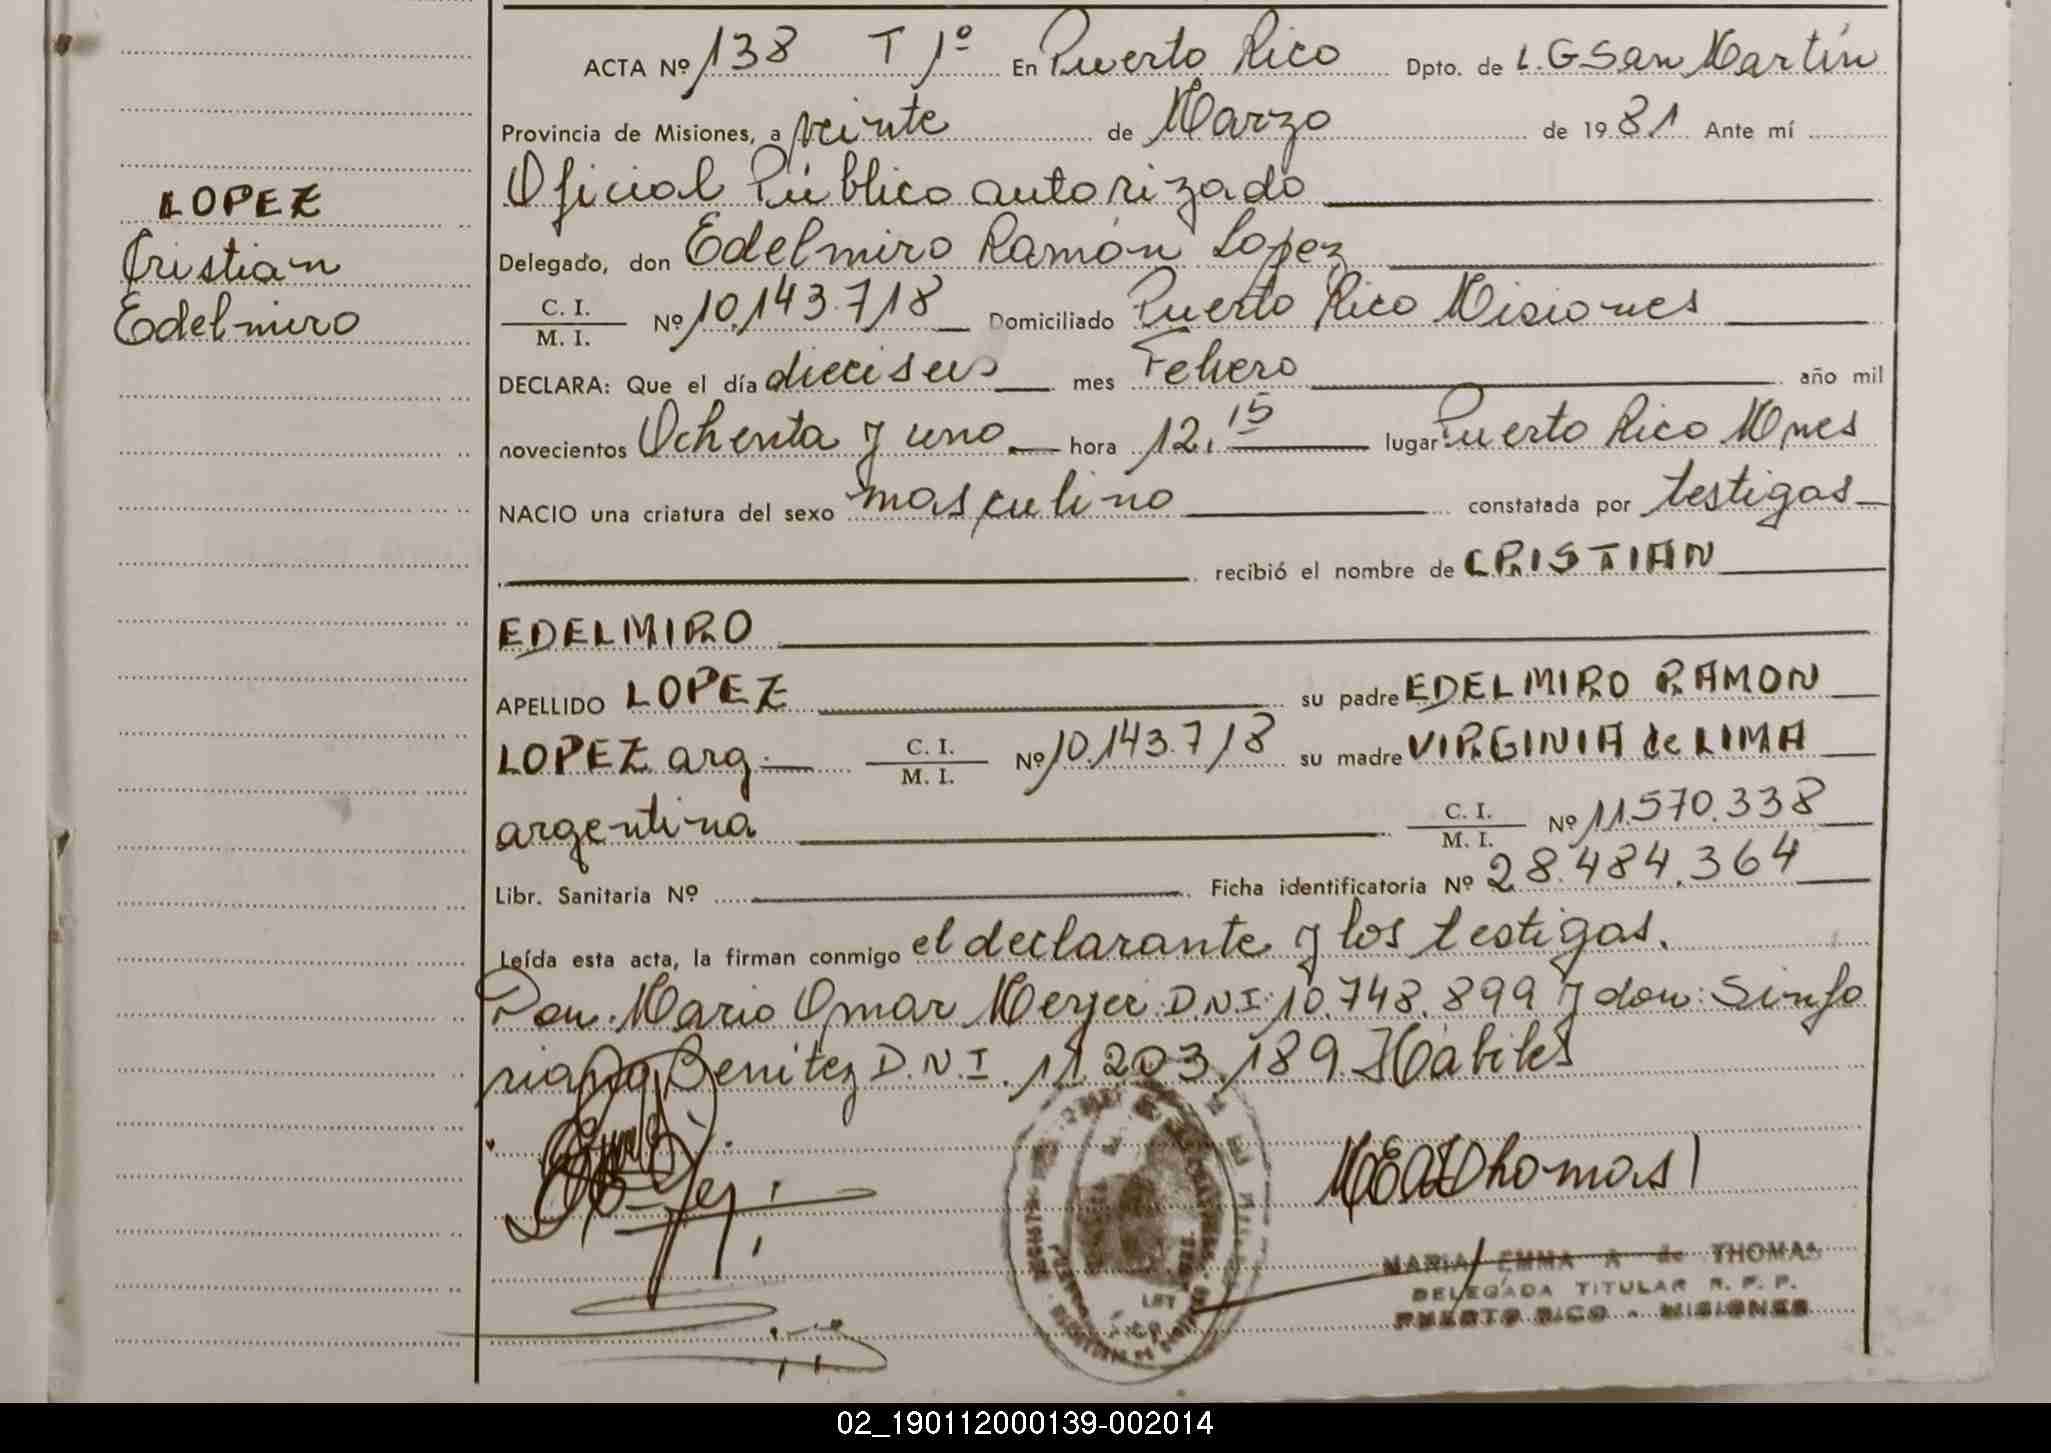 ACTA Nº 138 T 1º En Puerto Rico Dpto. de L. G San Martín
Provincia de Misiones, a veinte de Marzo de 1981 Ante mí
Oficial Público autorizado
Delegado, don Edelmiro Ramón Lopez
C. I.
M. I.
Nº 10.143.718 Domiciliado Puerto Rico Misiones
DECLARA: Que el día dieciseis mes Febrero año mil
novecientos Ochenta y uno hora 12.15 lugar Puerto Rico Mnes
NACIO una criatura del sexo masculino constatada por testigos
recibió el nombre de CRISTIAN
EDELMIRO
APELLIDO LOPEZ su padre EDELMIRO RAMON
LOPEZ arg. C. I. M. I. Nº 10.143.718 su madre VIRGINIA de LIMA
argentina C. I. M. I. Nº 11.570.338
Libr. Sanitaria Nº Ficha identificatoria Nº 28.484.364
Leída esta acta, la firman conmigo el declarante y los testigos.
Don. Mario Omar Meyer D.N.I. 10.748.899 y don: Sinfo
riano Benítez D.N.I. 11.203.189. Hábiles
MEAdThomas
MARIA EMMA A de THOMAS
DELEGADA TITULAR R. P. P.
PUERTO RICO - MISIONES
LOPEZ
Cristian
Edelmiro
02_190112000139-002014